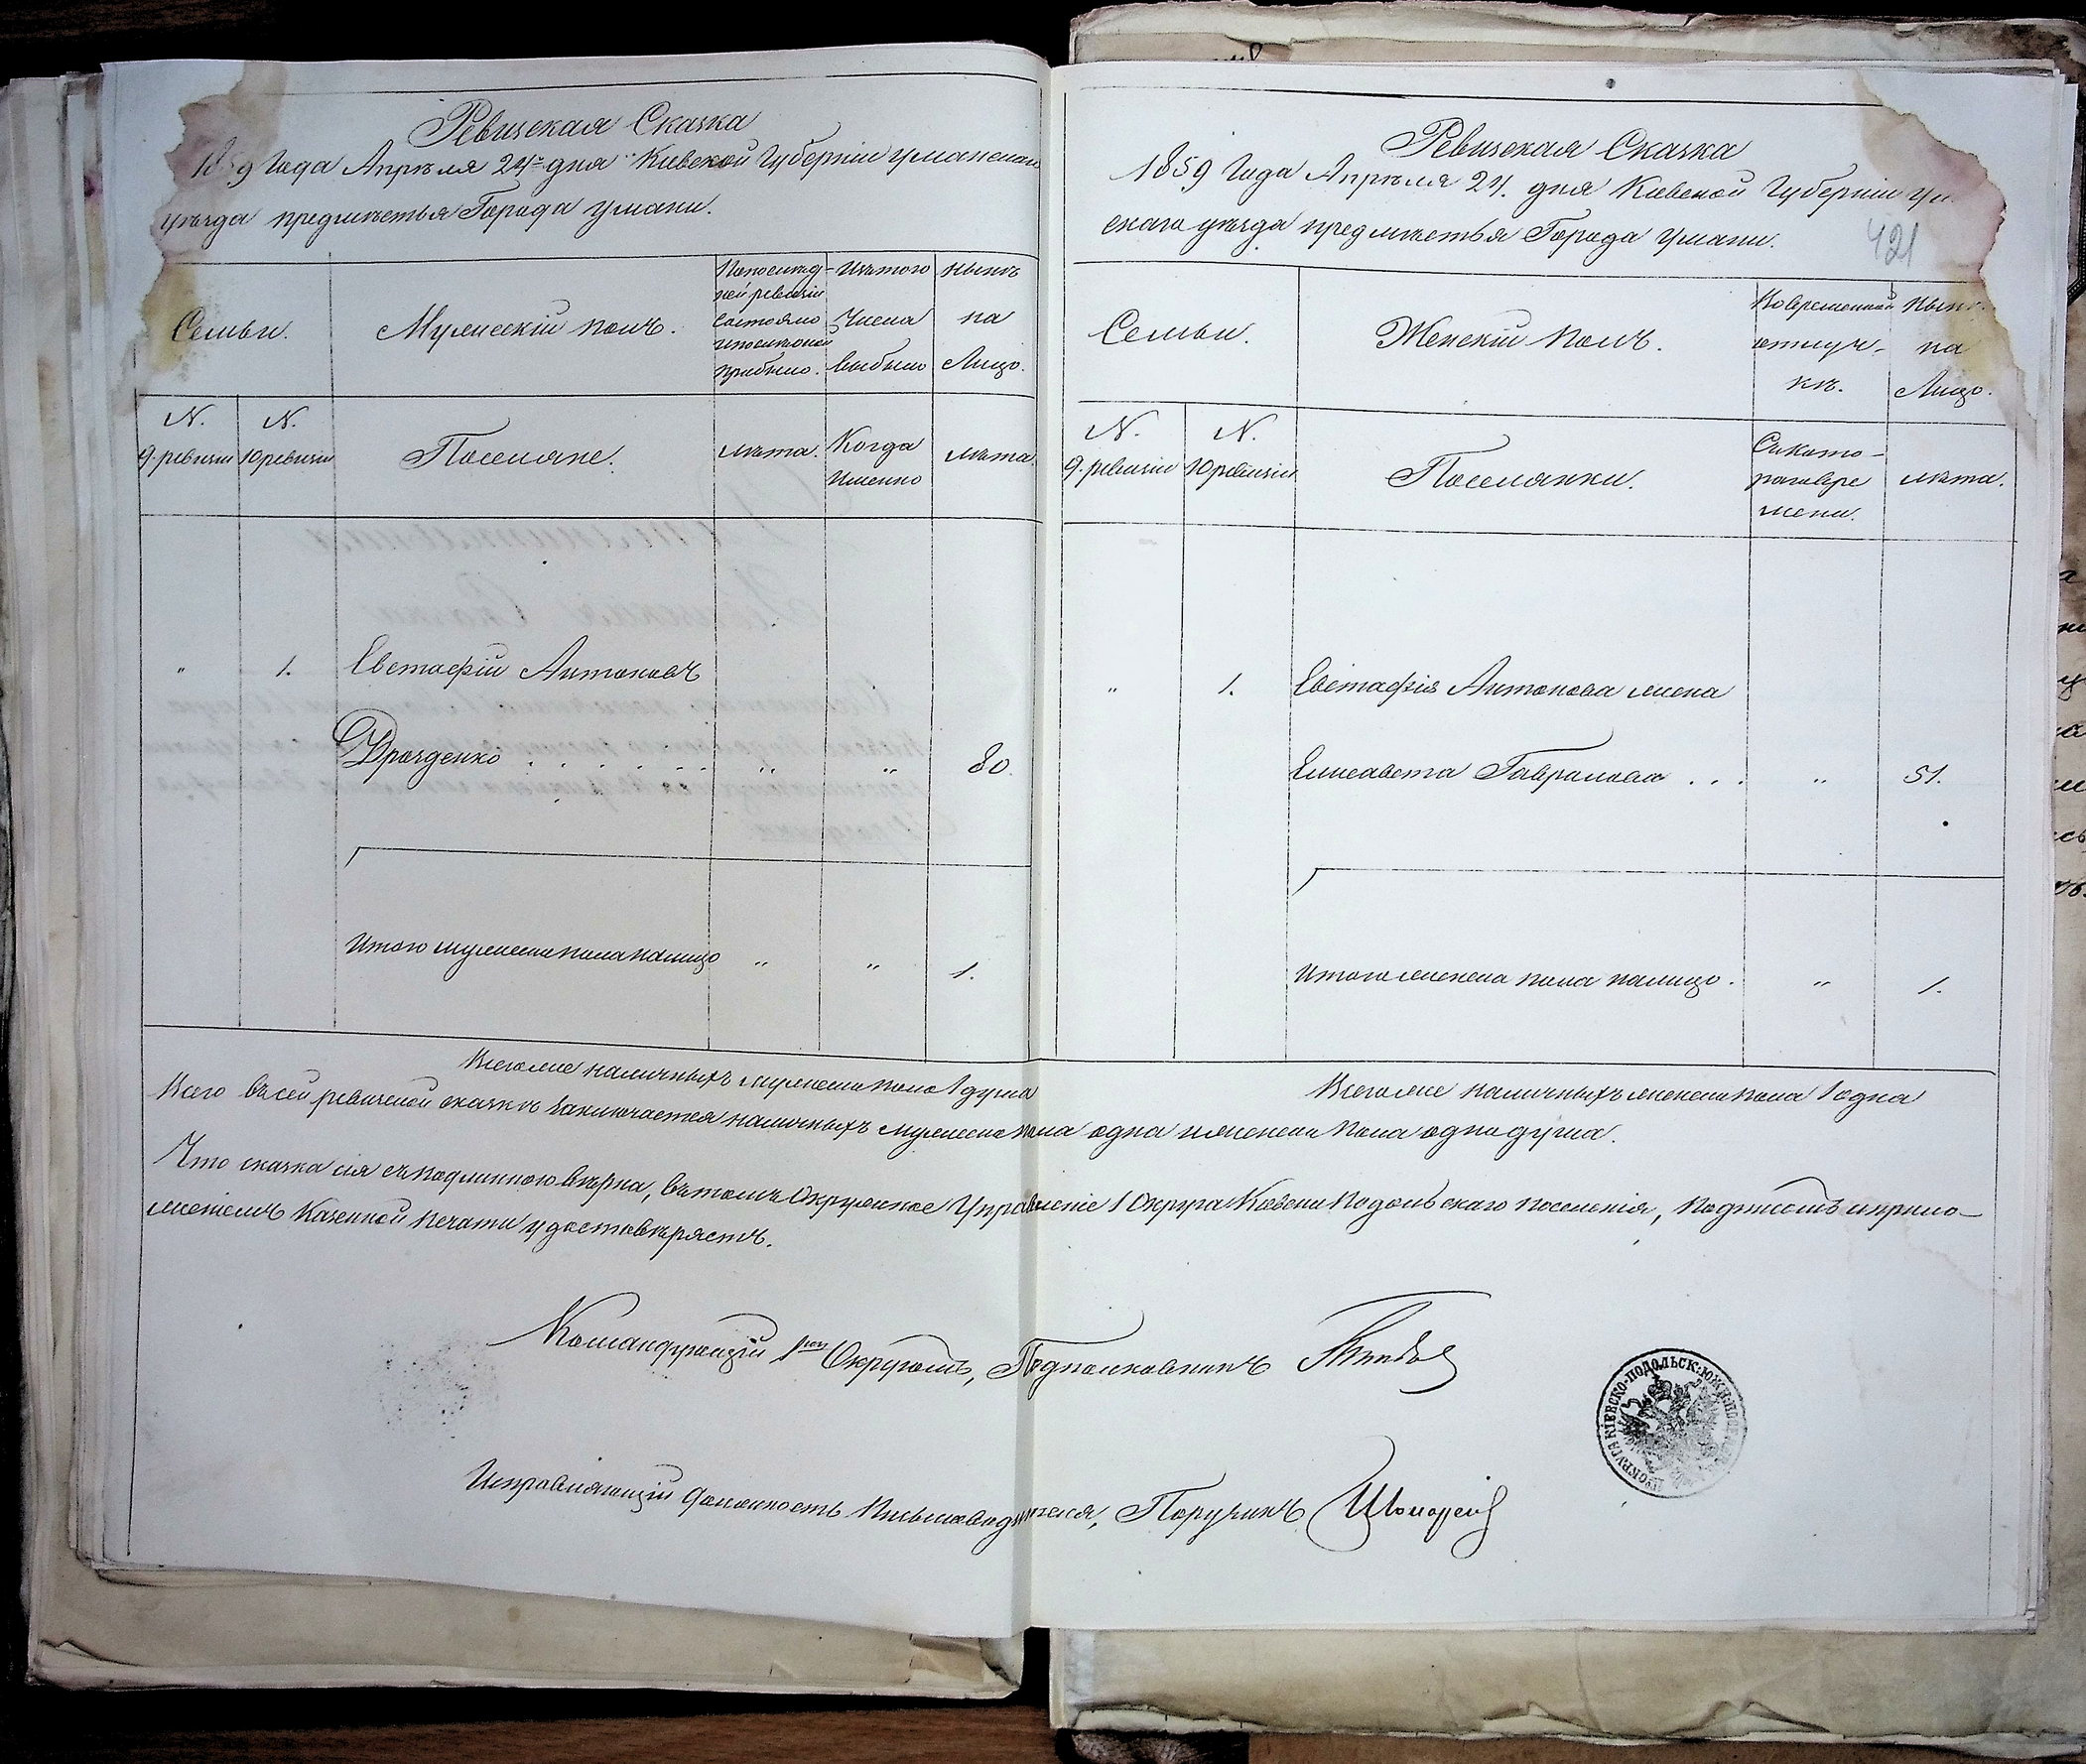 Ревизская Сказка
18 9 Года Апрѣля 24го дня Кіевской Губерніи Уманскаго
уѣзда предмѣстья Города Умани.
Семьи.
Мужескій полъ.
По послѣд-
ней ревизіи
состояло
и послѣ оной
прибыло.
Изъ того
Числа
выбыло
Нынѣ
на
Лицо.
N.
9. ревизіи
N.
10 ревизіи
Поселяне.
лѣта.
Когда
Именно
лѣта.
„ 1. Евстафій Антоновъ
Дрозденко . . . . . . „ „ 80.
Итого мужеска пола на лицо „ „ 1.
Всего же наличныхъ мужеска пола 1 душа
Ревизская Сказка
1859 Года Апрѣля 24. дня Кіевской Губерніи Ум
скаго уѣзда предмѣстья Города Умани.
421
Семьи.
Женскій полъ.
Во временной
отлуч-
кѣ.
Нынѣ
на
Лицо.
N.
9. ревизіи
N.
10 ревизіи
Поселянки.
Съ кото-
раго вре
мени.
лѣта.
„ 1. Евстафія Антонова жена
Елисавета Гаврилова . . . „ 51.
Итого женска пола на лицо. „ 1.
Всего же наличныхъ женска пола 1 одна
Всего въ сей ревизской сказкѣ заключается наличныхъ мужеска пола одна и женска пола одна душа.
Что сказка сія съ подлинною вѣрна, въ томъ Окружное Управленіе 1 Округа Кіевско Подольскаго поселенія, подписомъ и прило-
женіемъ Казенной печати удостовѣряетъ.
Командующій 1мъ Округомъ, Подполковникъ
Исправляющій должность Письмоводителя, Поручикъ
ОКРУГА КІЕВСКО-ПОДОЛЬСК: ЮЖН: